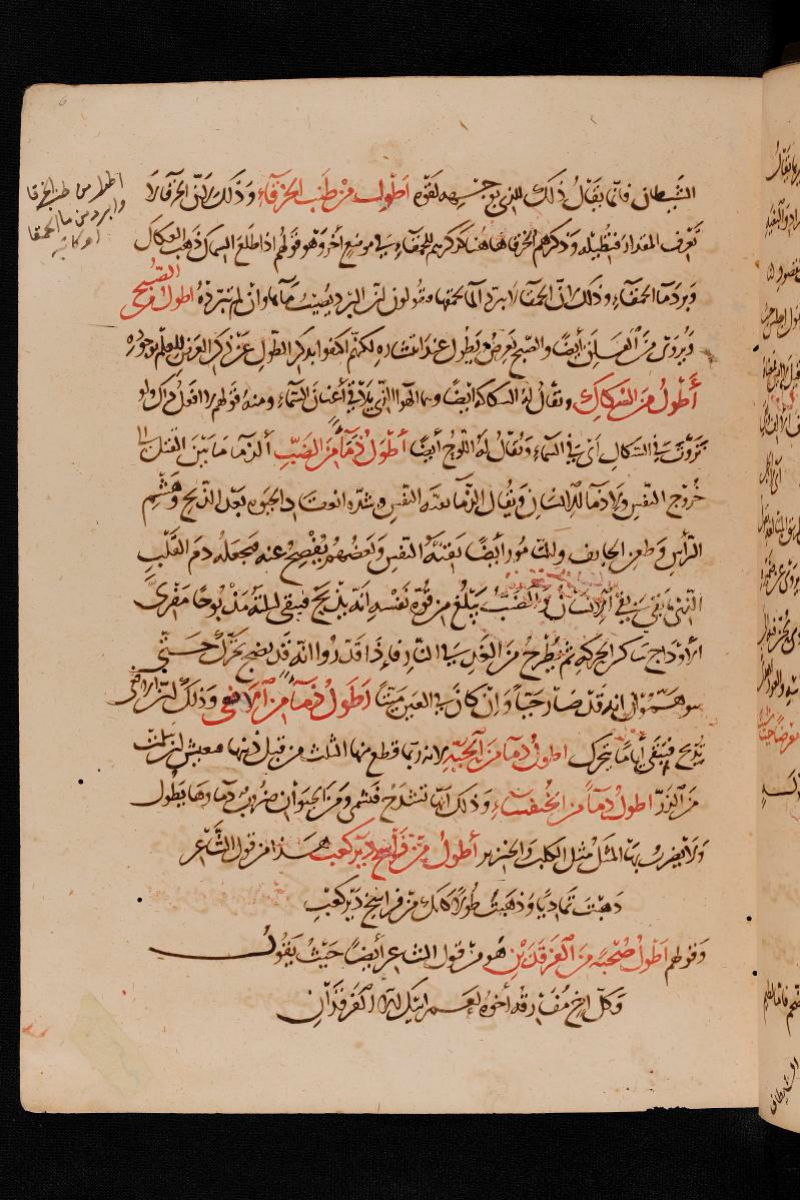 اطول من طنب الخرقا
وابرد من ما الحمقا
الشيطان فانما يقال ذلك للذي به لقوه أطول من طنب الخرقاء وذلك لان الخرقا لا
تعرف المقدار فتطيله وذكرهم الخرقا هاهنا كذكرهم للحمقاء في موضع آخر وهو قولهم اذا طلع السماك ذهب العكاك
وبرد ما الحمقاء وذلك ان الحمقا لا تبرد الما فيقولون ان البرد يصيب ماها وان لم تبرده اطول من الصبح
ويروى من الفلق أيضا والصبح يعرض ويطول عند انتشاره لكنهم اكتفوا بذكر الطول عن ذكر العرض للعلم بوجوده
أطول من السكاك ويقال له السكاكه ايضا وهما الهوا الذي يلاقي أعنان السماء ومنه قولهم لا افعل ذاك ولو
نزوت في السكاك اي في السماء ويقال له اللوح أيضا أطول ذماء من الضب الذما ما بين القتل الى
خروج النفس ولا ذما للانسان ويقال الذما بقية النفس وشدة انعقاد الحيوه بعد الذبح وهشم
الرأس وطعن الجايف والتامور أيضا بقية النفس وبعضهم يفصح عنه فيجعله دم القلب
الذي ما بقي بقي الانسان والضب يبلغ من قوة نفسه انه يذبح فيبقى ليلته مذبوحا مفرى
الاوداج ساكن الحركه ثم يطرح من الغد في النار فاذا قدروا انه قد نضج تحرك حتى
يتوهموا انه قد صار حيا وان كان في العين ميتا أطول ذماء من الافعى وذلك ان الافعى
تذبح فتبقى أياما تتحرك اطول ذما من الحيه لانه ربما قطع منها الثلث من قبل ذنبها فتعيش ان سلمت
من الذر اطول ذماء من الخنفساء وذلك انها تشدخ فتمشي ومن الحيوان ضروب ذماوها يطول
ولا يضرب بها المثل مثل الكلب والخنزير أطول من فراسخ دير كعب هذا من قول الشاعر
ذهبت تماديا وذهبت طولا كانك من فراسخ دير كعب
وقولهم أطول صحبه من الفرقدين هو من قول الشاعر أيضا حيث يقول
وكل اخ مفارقه أخوه لعمر ابيك الا الفرقدان